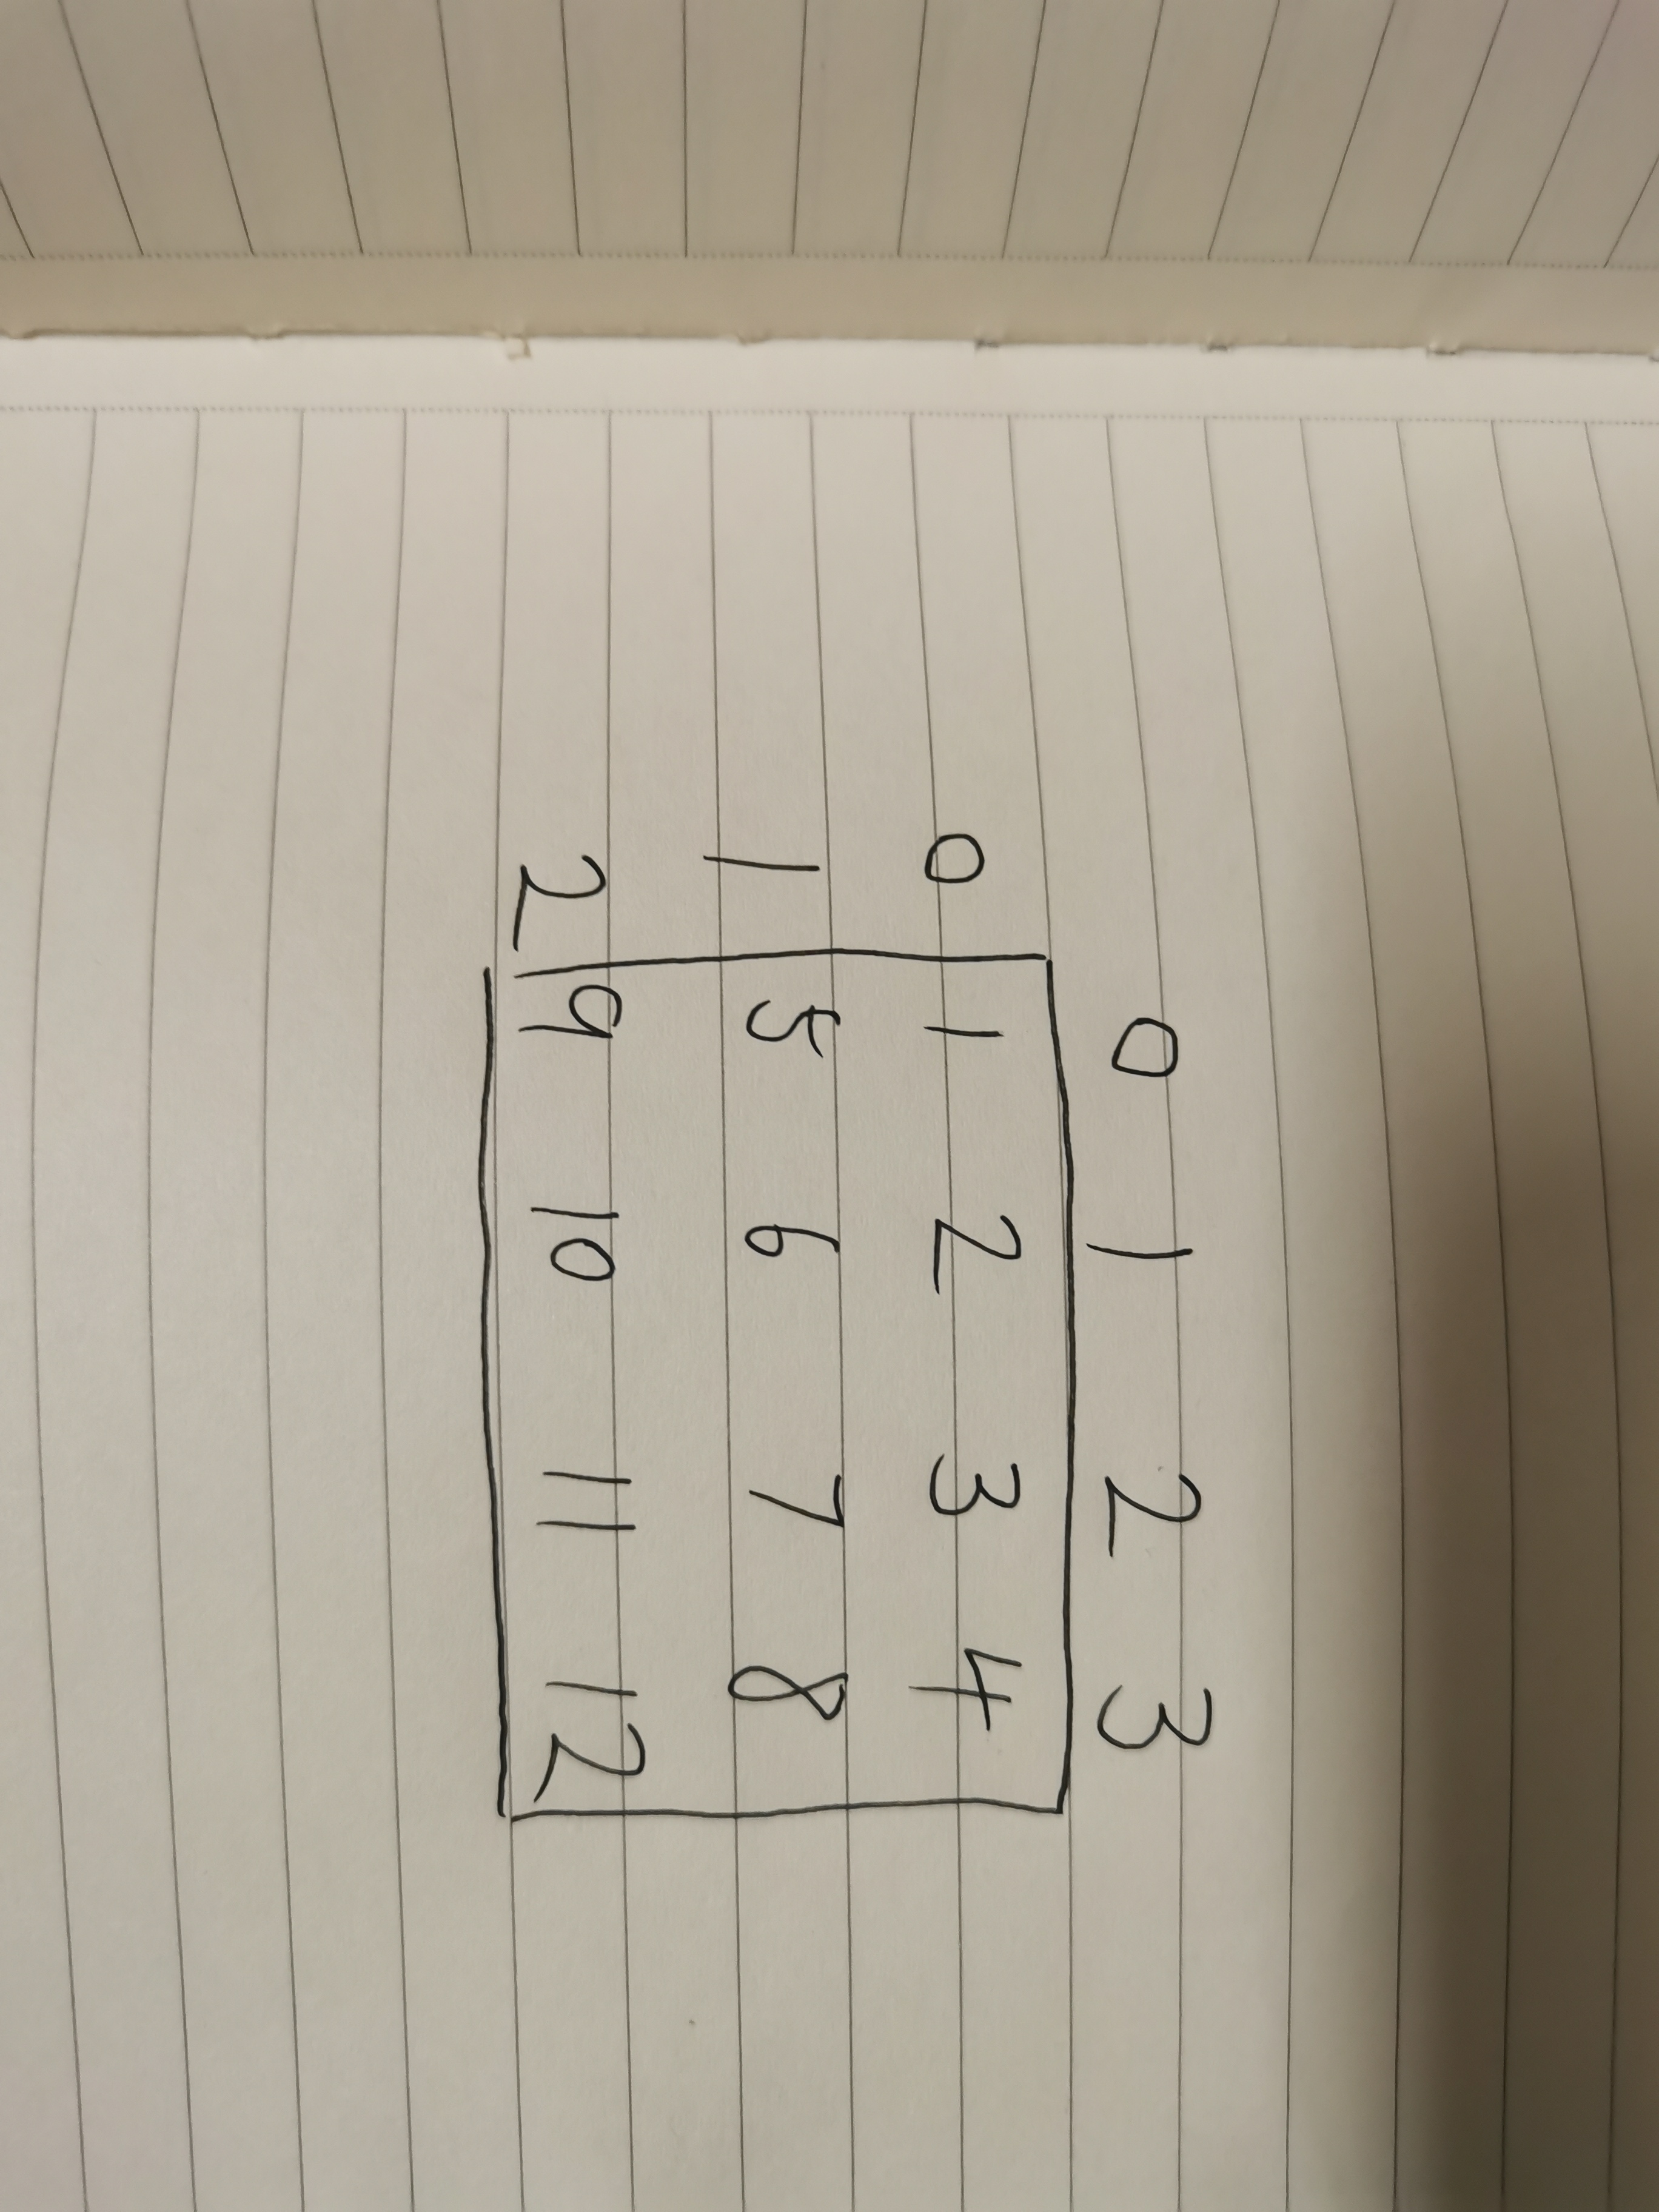 0 1 2 3
0 1 2 3 4
1 5 6 7 8
2 9 10 11 12